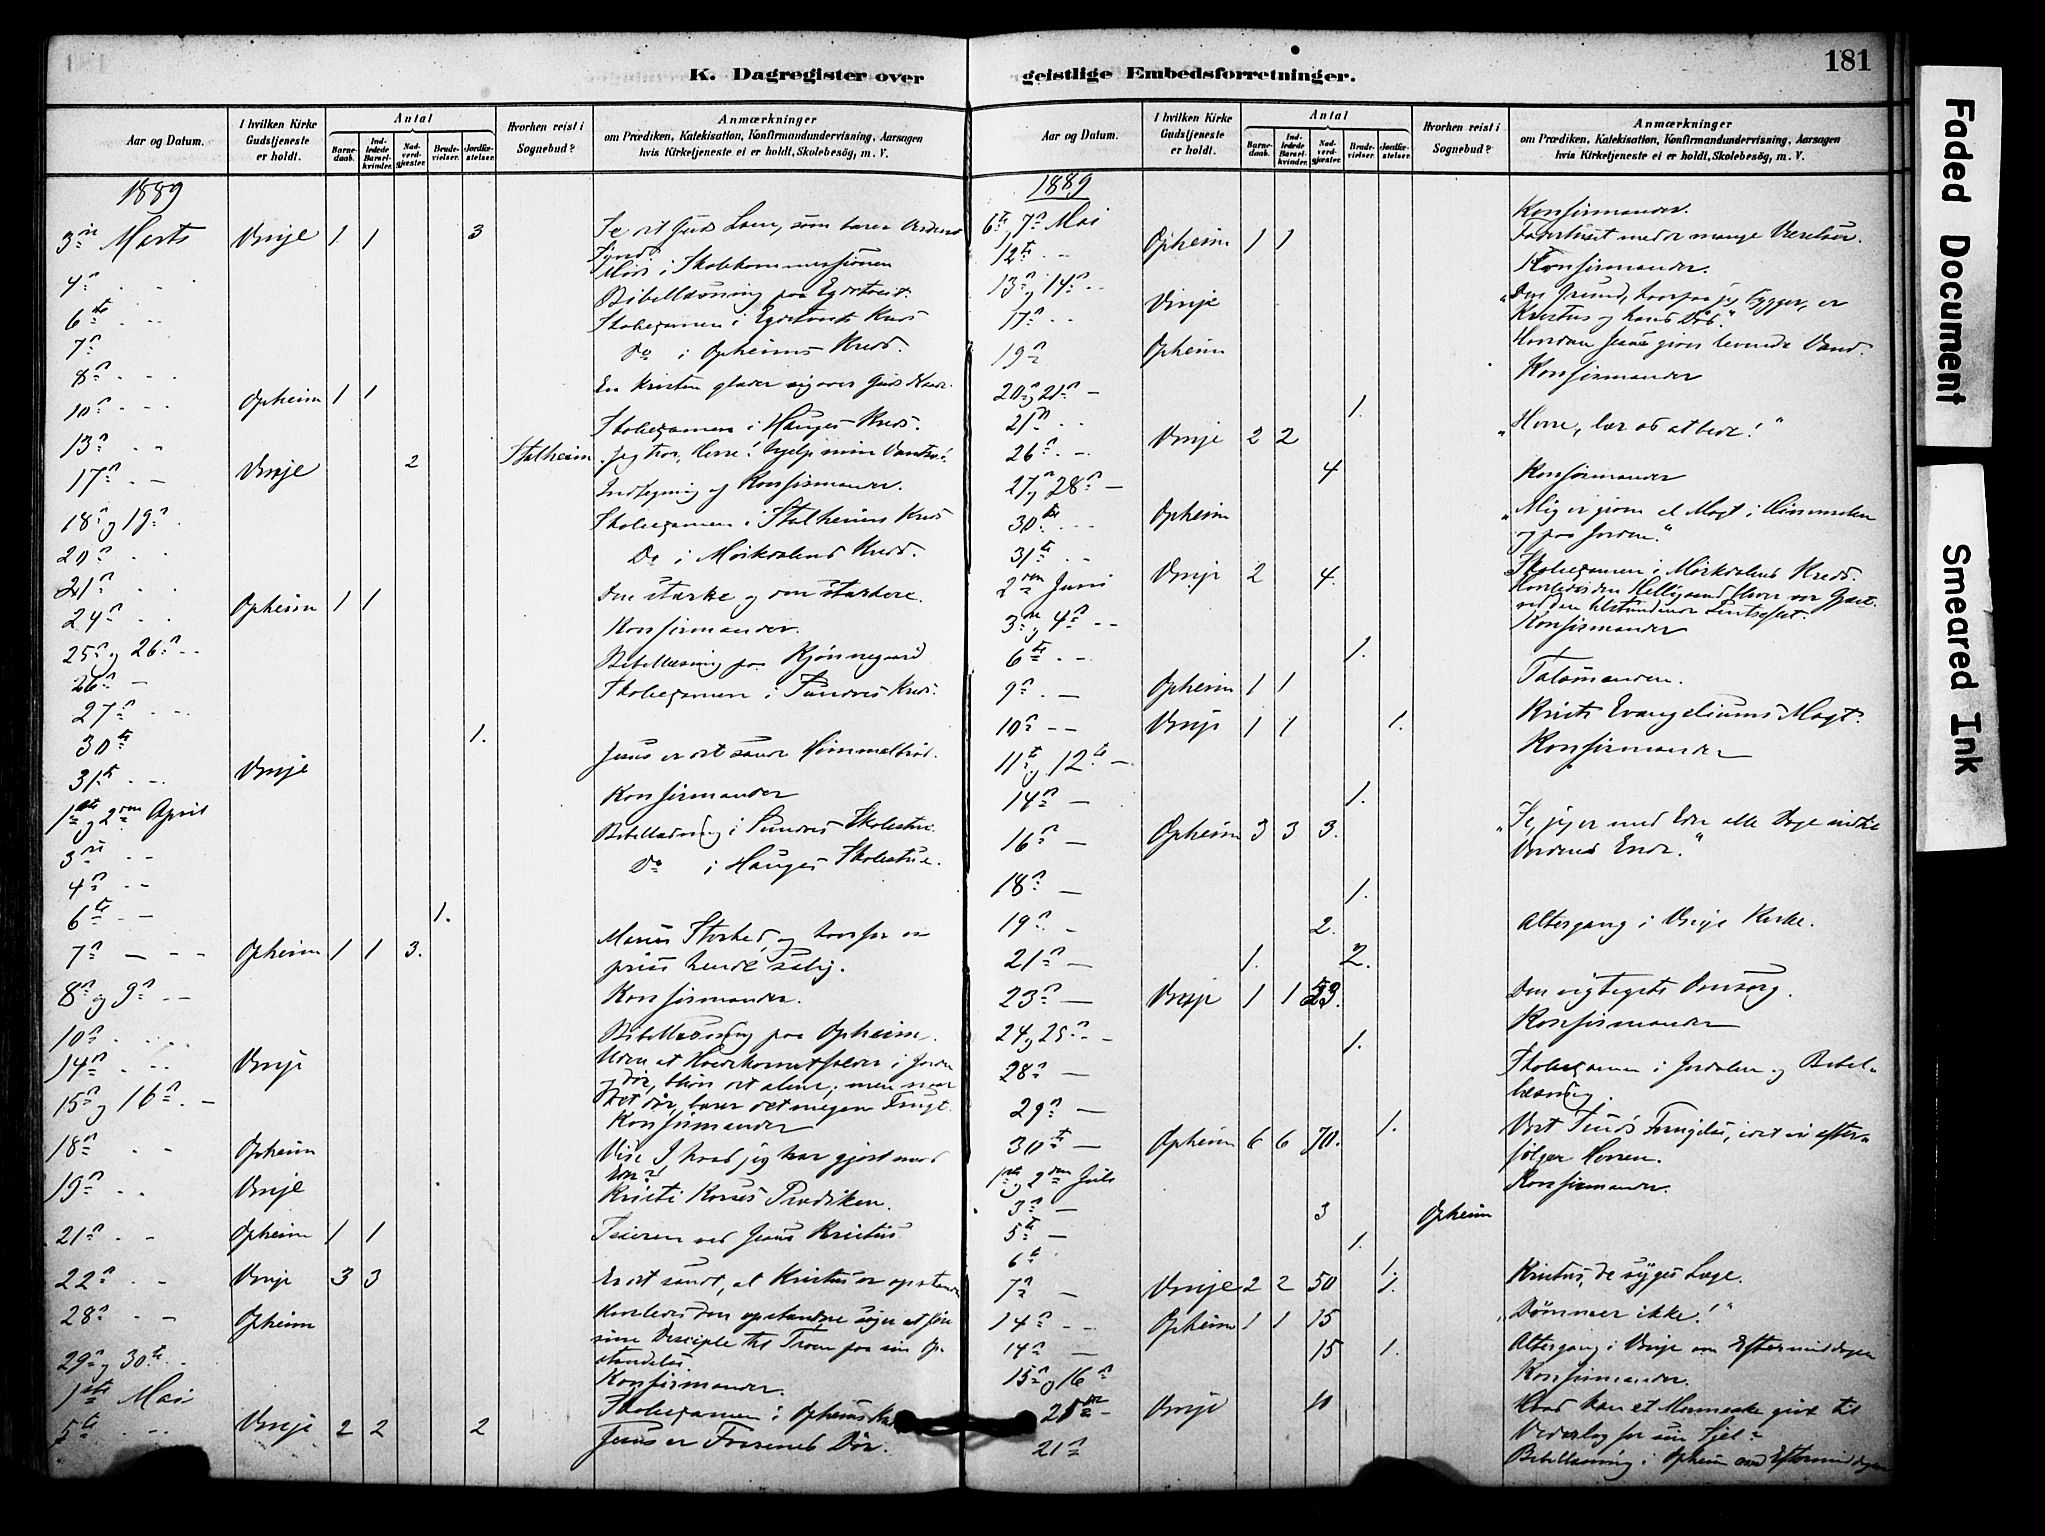 181
K. Dagregister over geistlige Embedsforretninger.
Aar og Datum.
I hvilken Kirke Gudstjeneste er holdt.
Antal
Barnedaab.
Indledede Barselkvinder.
Nadverdgjæster.
Brudevielser.
Jordfæstelser.
Hvorhen reist i Sognebud?
Anmærkninger
om Prædiken, Katekisation, Konfirmandundervisning, Aarsagen
hvis Kirketjeneste ei er holdt, Skolebesög, m. V.
1889
3die Marts Vinje 1 1 3 Se det Guds Lam, som bærer Verdens
Synd
4de Møde i Skolekommissionen
6te Bibellæsning paa
7de Skoleexamen i Kreds
8de Do i Opheims Kreds.
10de Opheim 1 1 En Kristen glæder sig over Guds
13de Skoleexamen i Hauges Kreds.
17de Vinje 2 Stalheim Jeg tror, Herre! hjelp min Vantro!
18de og 19de Indtegning af Konfirmander.
20de Skoleexamen i Stalheims Kreds
21de Do i Mørkdalens Kreds.
24de Opheim 1 1 Den stærke og den stærkere.
25de og 26de Konfirmander.
26de Bibellæsning paa
27de Skoleexamen i Sundves Kreds.
30te 1.
31te Vinje Jesus er det sande Himmelbrød.
1ste og 2den April Konfirmander
3die Bibellæsning i Sundves Skolestue.
4de Do i Hauges Skolestue.
6te 1.
7de Opheim 1 1 3. Marias Storhed, og hvorfor vi
prise hende salig.
8de og 9de Konfirmander.
10de Bibellæsning paa Opheim.
14de Vinje Uden at Hvedekornet falder i Jorden
og dør, bliver det alene; men naar
det dør, bærer det megen Frugt.
15de og 16de Konfirmander
18de Opheim Vide I hvad jeg har gjort mod
Eder?
19de Vinje Kristi Korses Prædiken.
21de Opheim 1 1 Seieren ved Jesus Kristus
22de Vinje 3 3 Er det sandt, at Kristus er opstanden
28de Opheim Hvorledes den opstandne søger at føre
sine Disciple til Troen paa sin Opstandelse.
29de og 30te Konfirmander.
1ste Mai Skoleexamen i Opheims
5te Vinje 2 2 2 Jesus er Faarenes Dør.
Aar og Datum.
I hvilken Kirke Gudstjeneste er holdt.
Antal
Barnedaab.
Indledede Barselkvinder.
Nadverdgjæster.
Brudevielser.
Jordfæstelser.
Hvorhen reist i Sognebud?
Anmærkninger
om Prædiken, Katekisation, Konfirmandundervisning, Aarsagen
hvis Kirketjeneste ei er holdt, Skolebesög, m. V.
1889
6te, 7de Mai Konfirmander.
12te Opheim 1 1 Faderhuset med de mange Værelser.
13de og 14de Konfirmander.
17de Vinje "Den Grund, hvorpaa jeg bygger, er
Kristus og hans Død."
19de Opheim Hvordan Jesus giver levende Vand.
20de og 21de Konfirmander
21de 1.
26de Vinje 2 2 "Herre, lær os at bede!"
27de og 28de 4 Konfirmander
30te Opheim "Mig er given al Magt i Himmelen
og paa Jorden."
31te Skoleexamen i Mørkdalens Kreds.
2den Juni Vinje 2 4. Hvorledes den Helligaand bliver vor Gjæst
ved den tilstundende Pintsefest.
3die og 4de Konfirmander
6te 1.
9de Opheim 1 1 Talsmanden.
10de Vinje 1 1 1. Kristi Evangeliums Magt.
11te og 12te Konfirmander
14de 1.
16de Opheim 3 3 3. "Se, jeg er med Eder alle Dage indtil
Verdens Ende."
18de 1.
19de 2. Altergang i Vinje Kirke.
21de 1. 2.
23de Vinje 1 1 53. Den vigtigste Omsorg.
24 og 25de Konfirmander
28de 1.
29de Skoleexamen i Jordalen og Bibellæsning.
30te Opheim 6 6 70. 1. Vort Synds Forligelse, idet vi efterfølger Herren.
1ste og 2den Juli Konfirmander.
3die
5te 3 Opheim
6te 1.
7de Vinje 2 2 50 1. Kristus, de syges Læge.
14de Opheim 1 1 15 "Dømmer ikke!"
14de 15 1. Altergang i Vinje om Eftermiddagen
15de og 16de Konfirmander.
21de Vinje 11 Hvad kan et Menneske give til
Vederlag for sin Sjel?
21de Bibellæsning i Opheim om Eftermiddagen
Faded Document
Smeared Ink